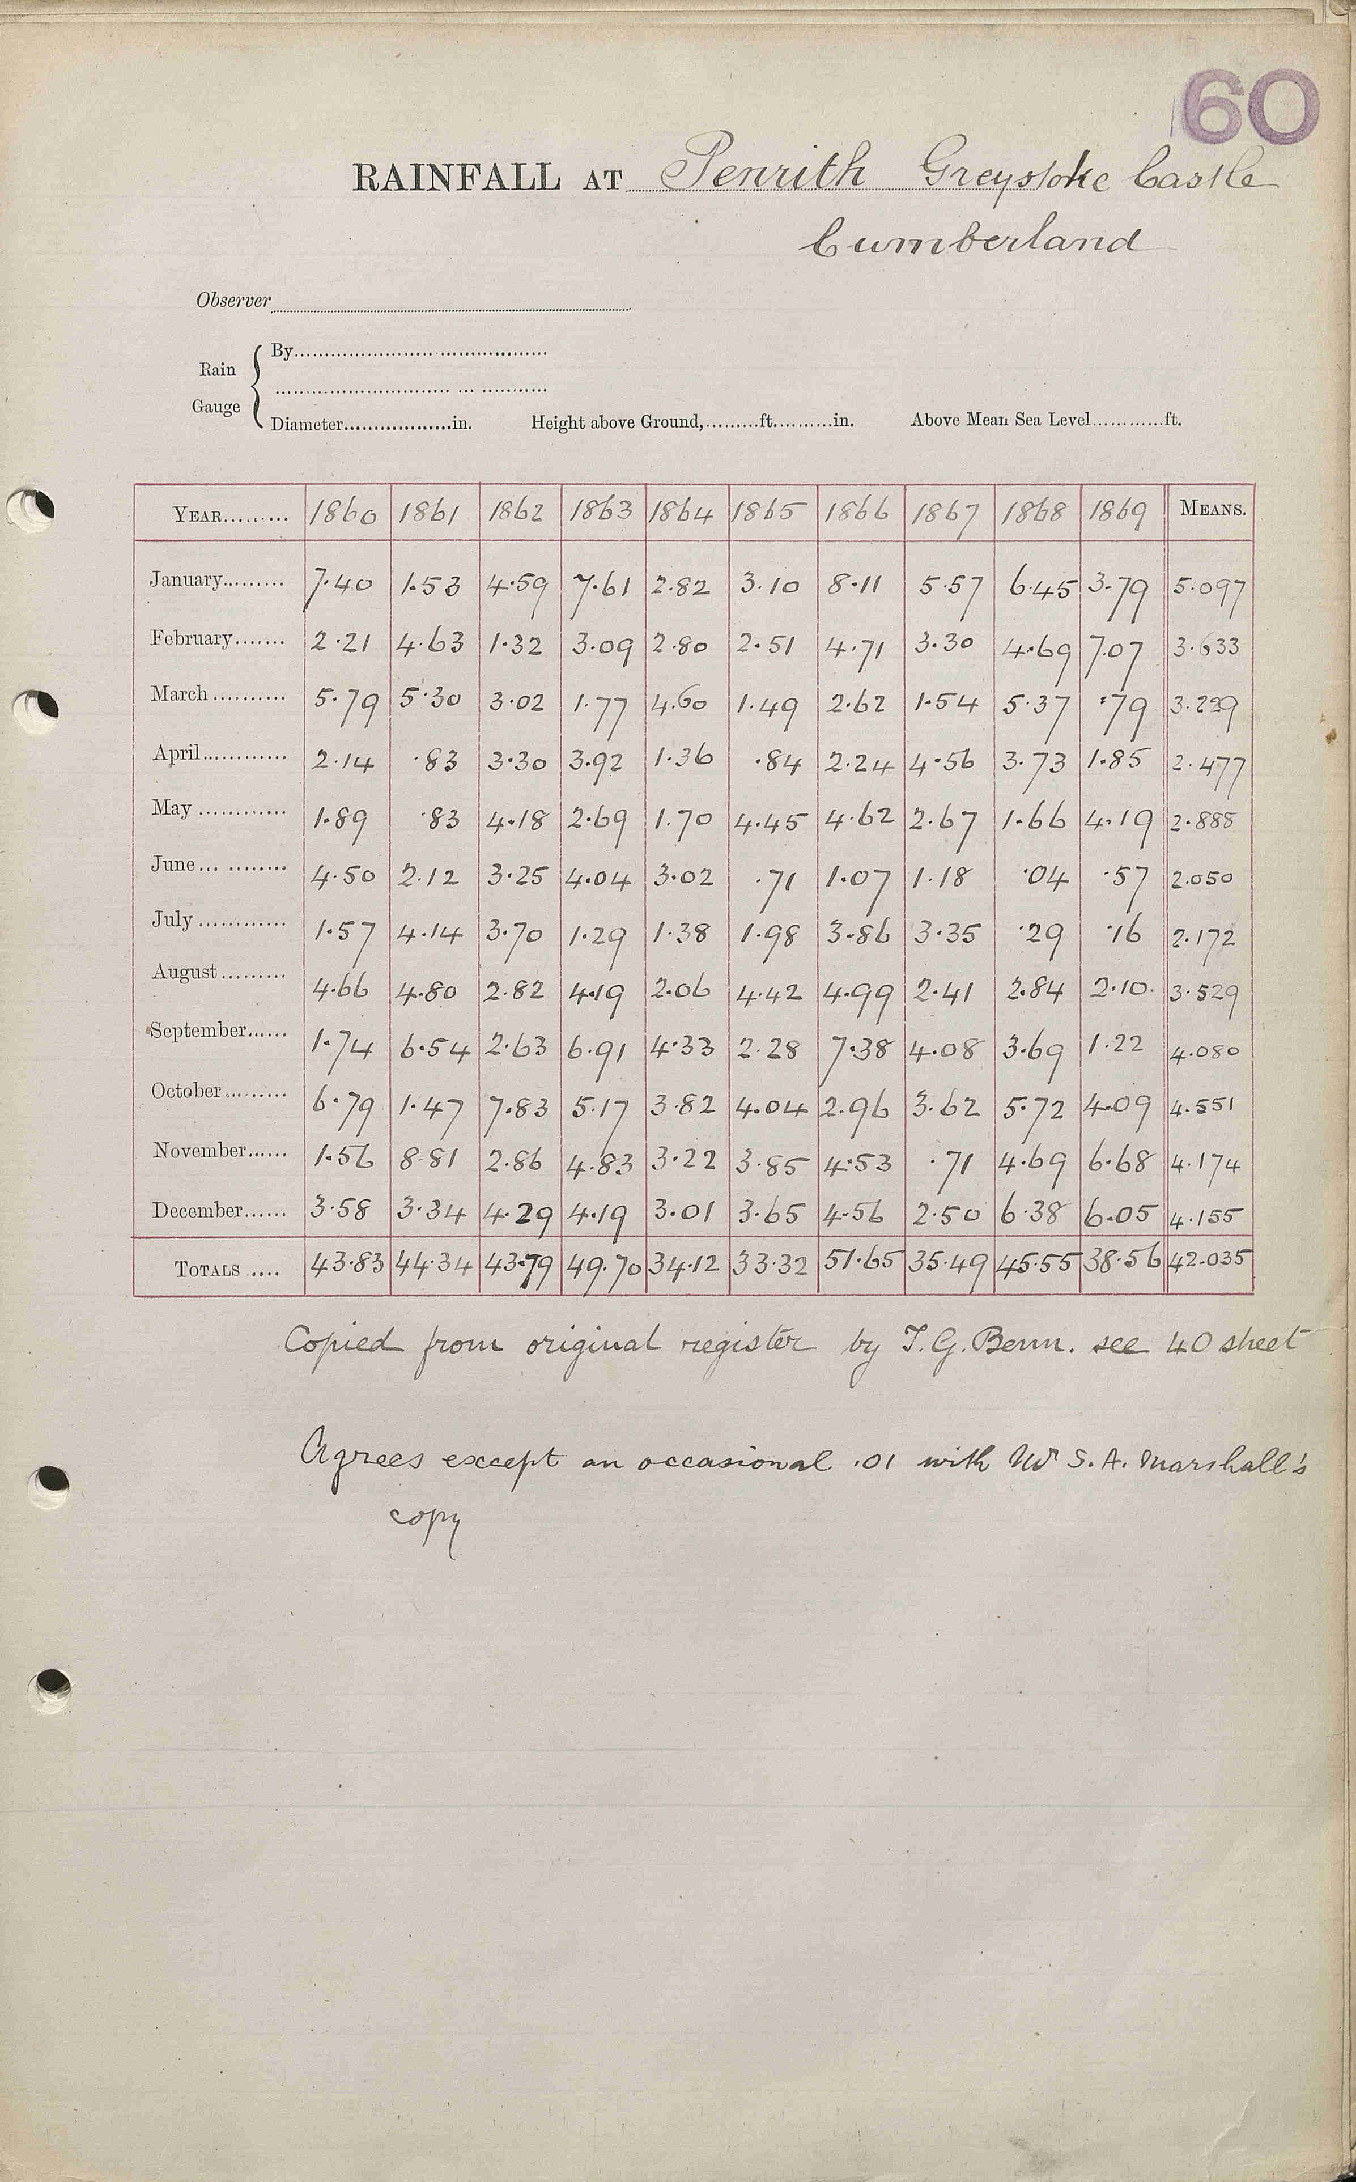 60
RAINFALL AT Penrith Greystoke Castle
Cumberland
Observer
Rain Gauge { By
Diameter in. Height above Ground, ft. in. Above Mean Sea Level ft.
YEAR 1860 1861 1862 1863 1864 1865 1866 1867 1868 1869 MEANS.
January 7.40 1.53 4.59 7.61 2.82 3.10 8.11 5.57 6.45 3.79 5.097
February 2.21 4.63 1.32 3.09 2.80 2.51 4.71 3.30 4.69 7.07 3.633
March 5.79 5.30 3.02 1.77 4.60 1.49 2.62 1.54 5.37 .79 3.229
April 2.14 .83 3.30 3.92 1.36 .84 2.24 4.56 3.73 1.85 2.477
May 1.89 .83 4.18 2.69 1.70 4.45 4.62 2.67 1.66 4.19 2.888
June 4.50 2.12 3.25 4.04 3.02 .71 1.07 1.18 .04 .57 2.050
July 1.57 4.14 3.70 1.29 1.38 1.98 3.86 3.35 .29 .16 2.172
August 4.66 4.80 2.82 4.19 2.06 4.42 4.99 2.41 2.84 2.10. 3.529
September 1.74 6.54 2.63 6.91 4.33 2.28 7.38 4.08 3.69 1.22 4.080
October 6.79 1.47 7.83 5.17 3.82 4.04 2.96 3.62 5.72 4.09 4.551
November 1.56 8.81 2.86 4.83 3.22 3.85 4.53 .71 4.69 6.68 4.174
December 3.58 3.34 4.29 4.19 3.01 3.65 4.56 2.50 6.38 6.05 4.155
TOTALS 43.83 44.34 43.79 49.70 34.12 33.32 51.65 35.49 45.55 38.56 42.035
Copied from original register by T. G. Benn. see 40 sheet
Agrees except an occasional .01 with Mr S. A. Marshall's
copy